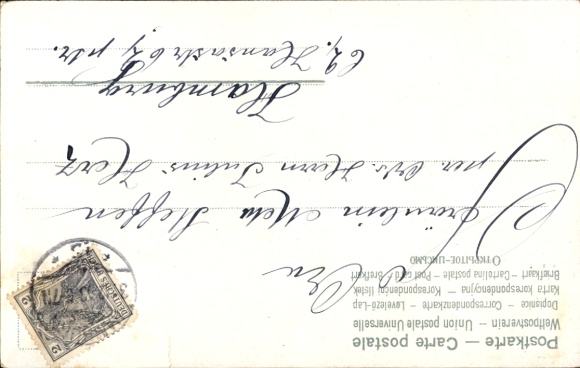 Postkarte — Carte postale
Weltpostverein — Union postale Universelle
Dopisnice — Correspondenzkarte — Levelező-Lap
Karta korespondencyjna — Korespondenční lístek
Briefkart — Cartolina postale — Post card — Brefkort
ОТКРЫТОЕ-ПИСЬМО
An
Fräulein Meta Steffen
per. Adr. Herrn Julius Herz
Hamburg
Hansastr 67 ptr.
DEUTSCHES REICH
2
2